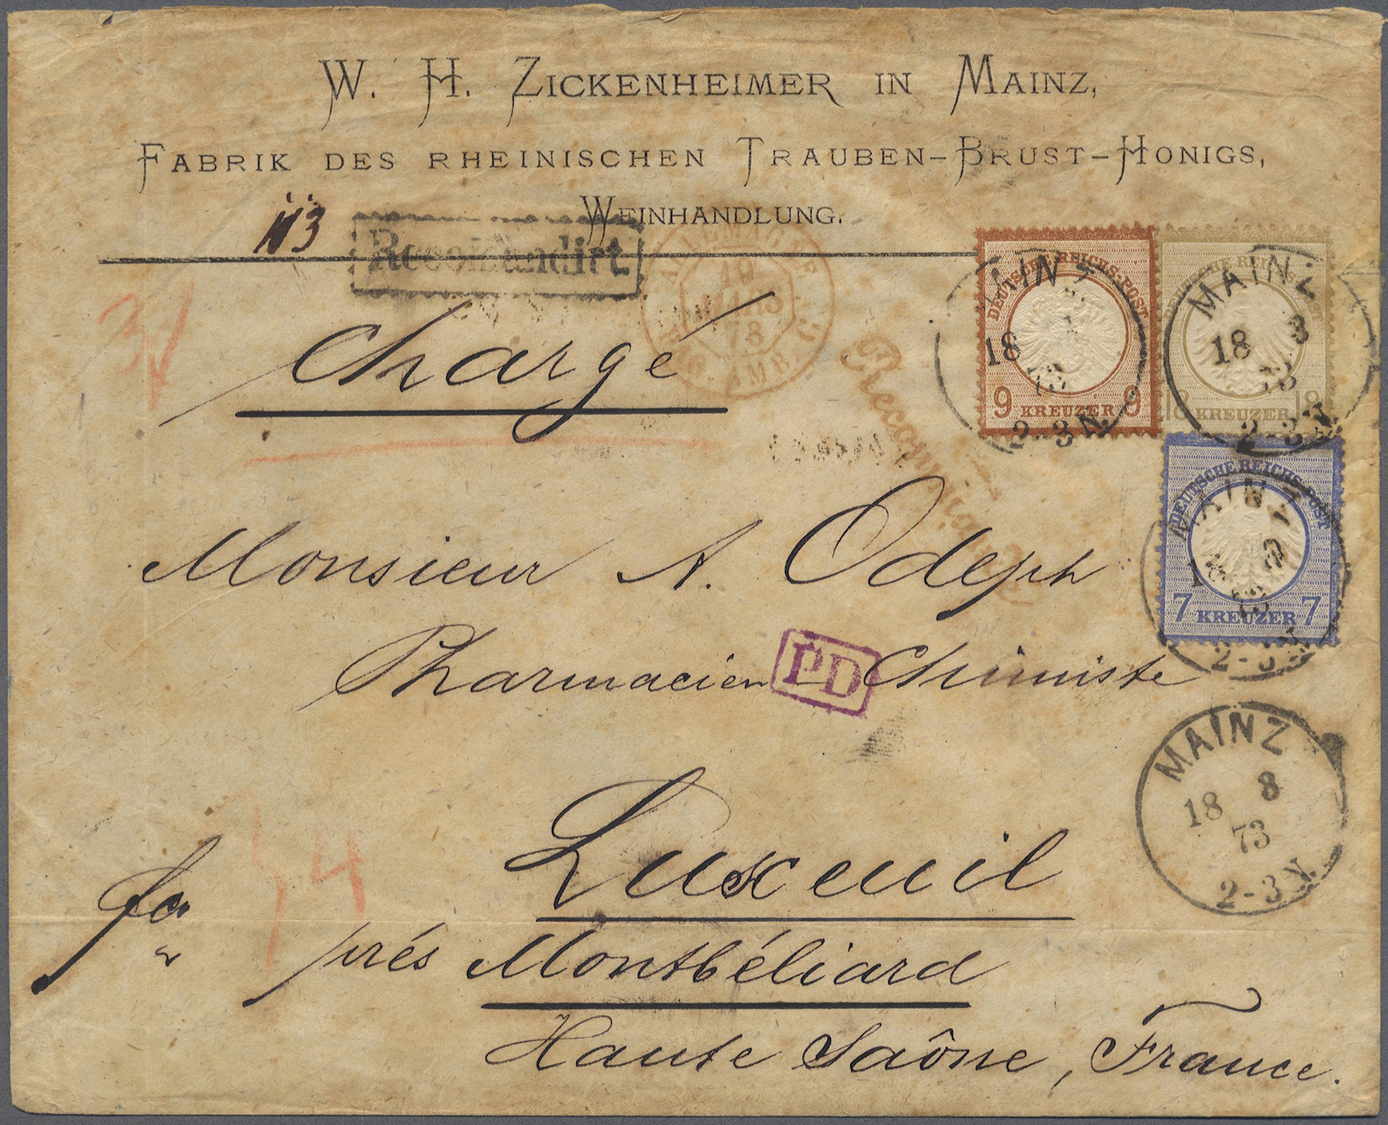 W. H. ZICKENHEIMER IN MAINZ,
FABRIK DES RHEINISCHEN TRAUBEN-BRUST-HONIGS,
WEINHANDLUNG.
113
Recomandirt.
Chargé
MAINZ
18 3
73
2-3 N.
DEUTSCHE REICHS-POST
9 KREUZER 9
MAINZ
18 3
73
2-3 N.
DEUTSCHE REICHS-POST
18 KREUZER 18
Monsieur A. Odeph
MAINZ
2-3 N.
DEUTSCHE REICHS-POST
7 KREUZER 7
Pharmacien-Chimiste
PD
MAINZ
18 3
73
2-3 N.
Luxeuil
fco
34
prés Montbéliard
Haute Saône, France.